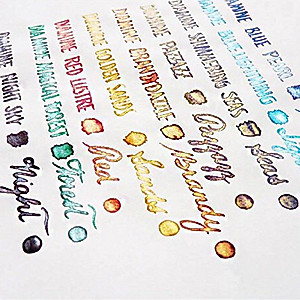 DIAMINE NIGHT SKY
Night
DIAMINE MAGICAL FOREST
Forest
DIAMINE RED LUSTRE
Red
DIAMINE GOLDEN SANDS
Sands
DIAMINE
Brandy
DIAMINE
DIAMINE SHIMMERING SEAS
Seas
DIAMINE BLUE LIGHTNING
DIAMINE BLUE PEARL